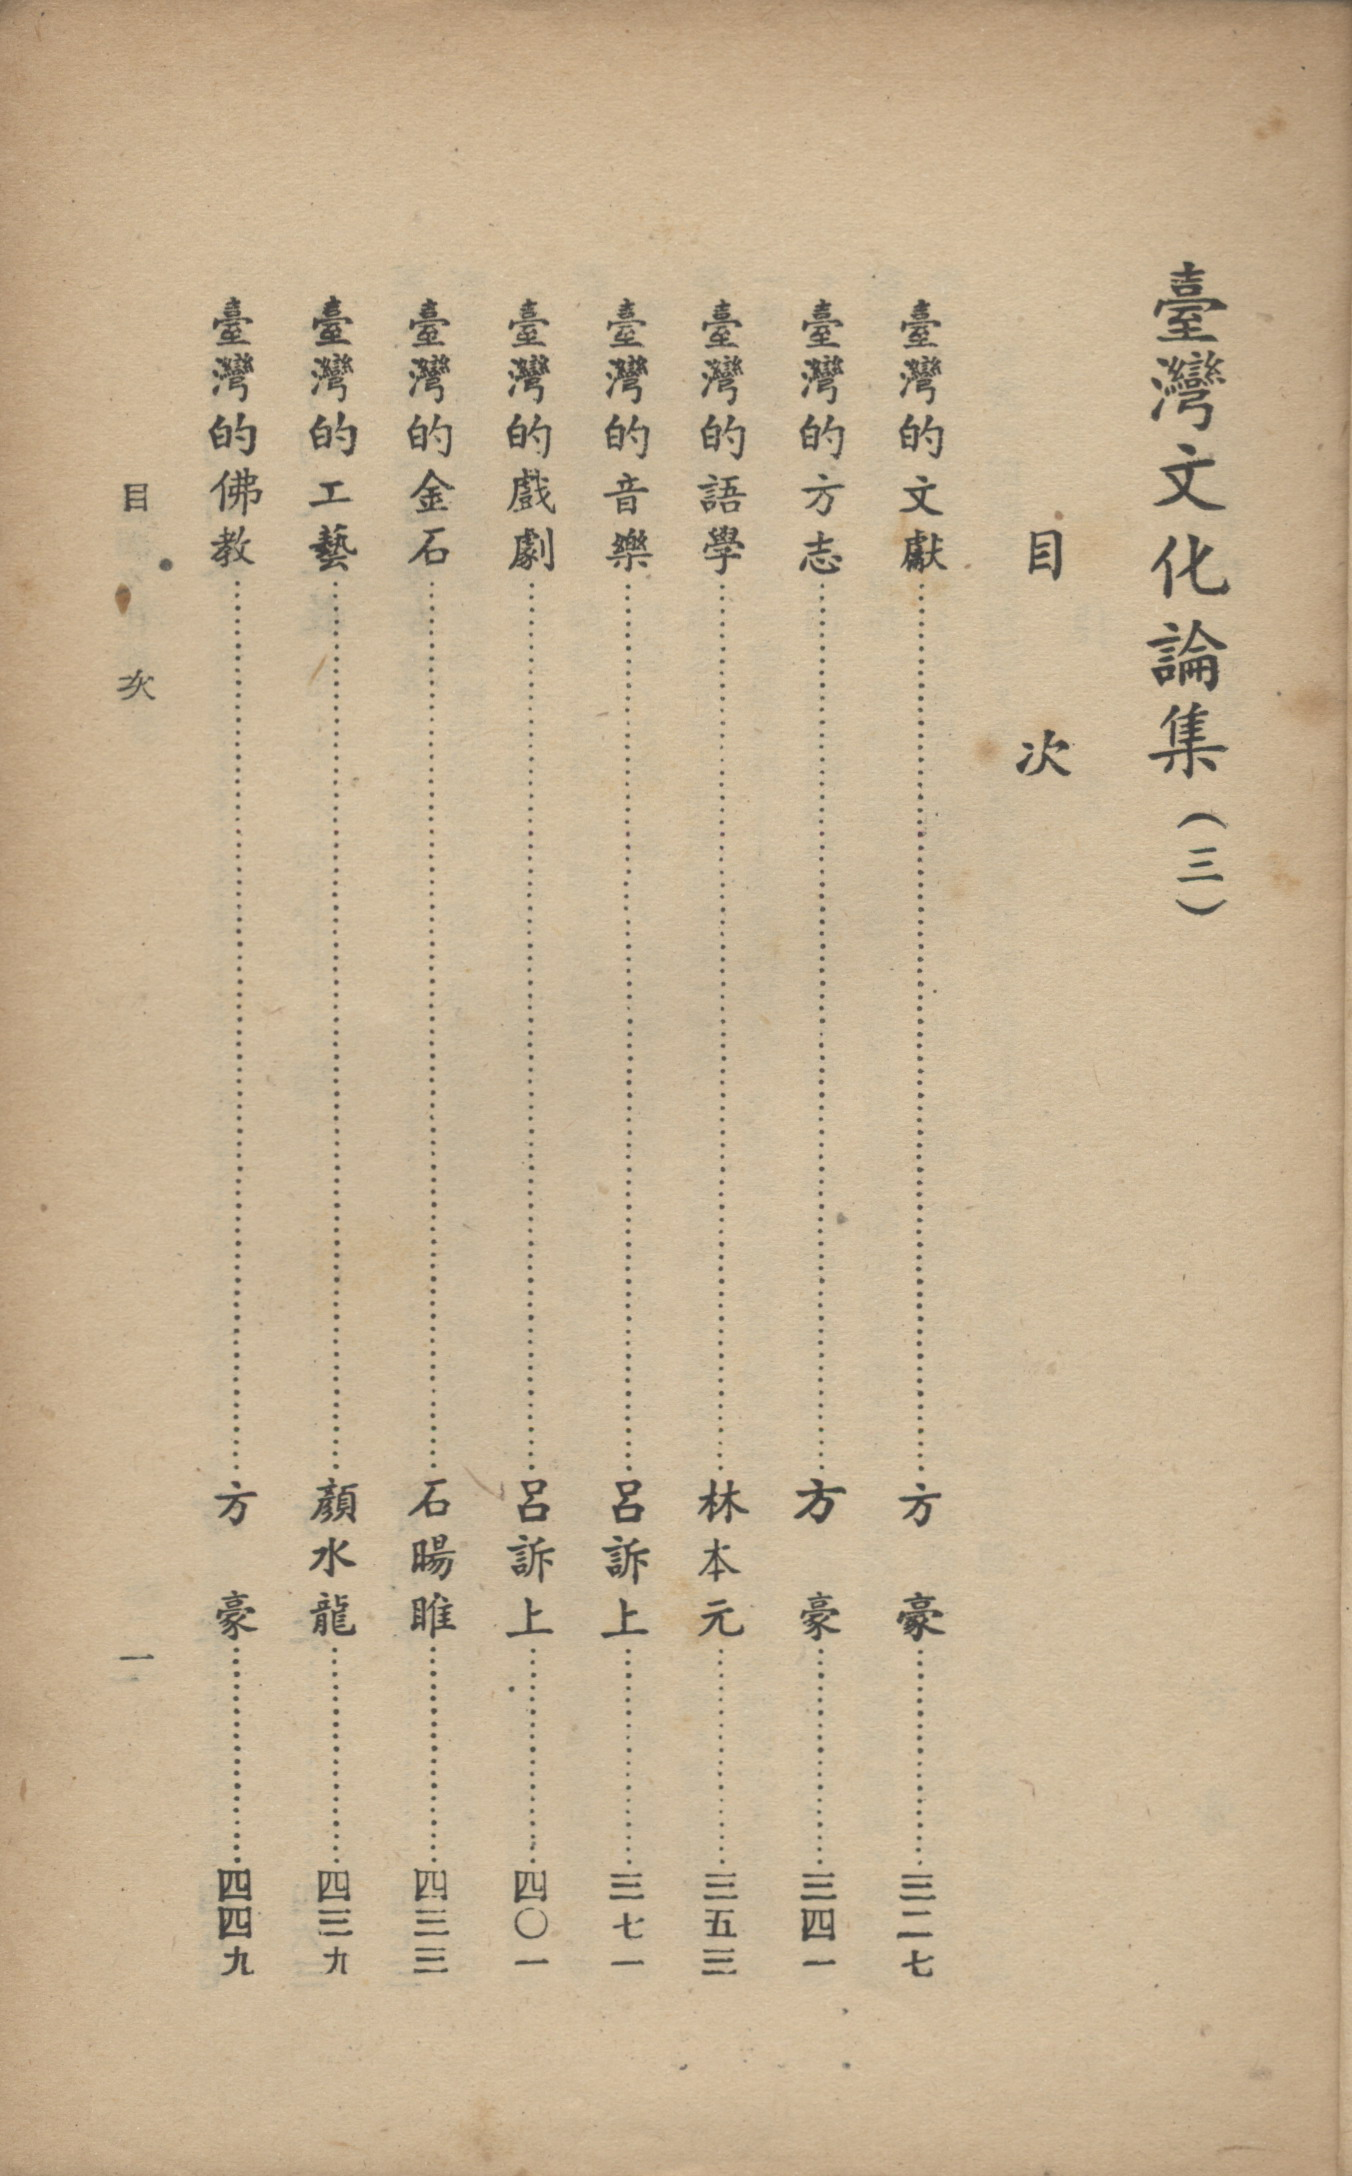 臺灣文化論集(三)
目次
臺灣的文獻……方豪……三二七
臺灣的方志……方豪……三四一
臺灣的語學……林本元……三五三
臺灣的音樂……呂訴上……三七一
臺灣的戲劇……呂訴上……四〇一
臺灣的金石……石暘睢……四三三
臺灣的工藝……顏水龍……四三九
臺灣的佛教……方豪……四四九
目次 一